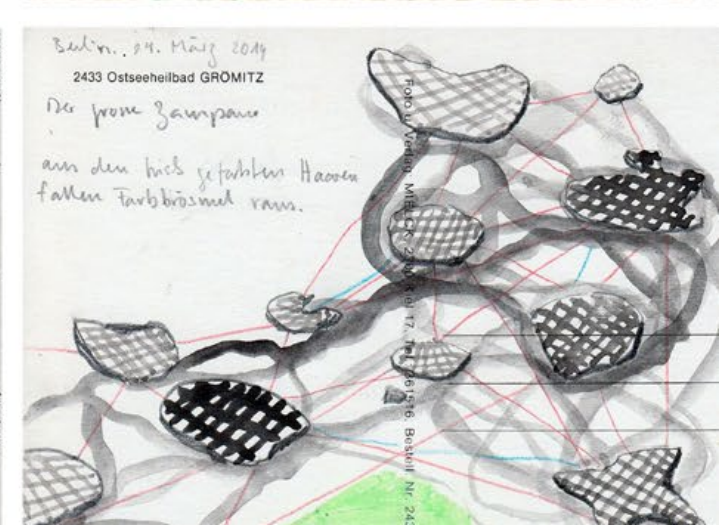 Berlin, 04. März 2014
2433 Ostseeheilbad GRÖMITZ
Der große Zampano
aus den gefärbten Haaren
fallen Farbbrösmel raus.
Foto u. Verlag MIELCK, 2300 Kiel 17, Tel. 361516 Bestell Nr. 242